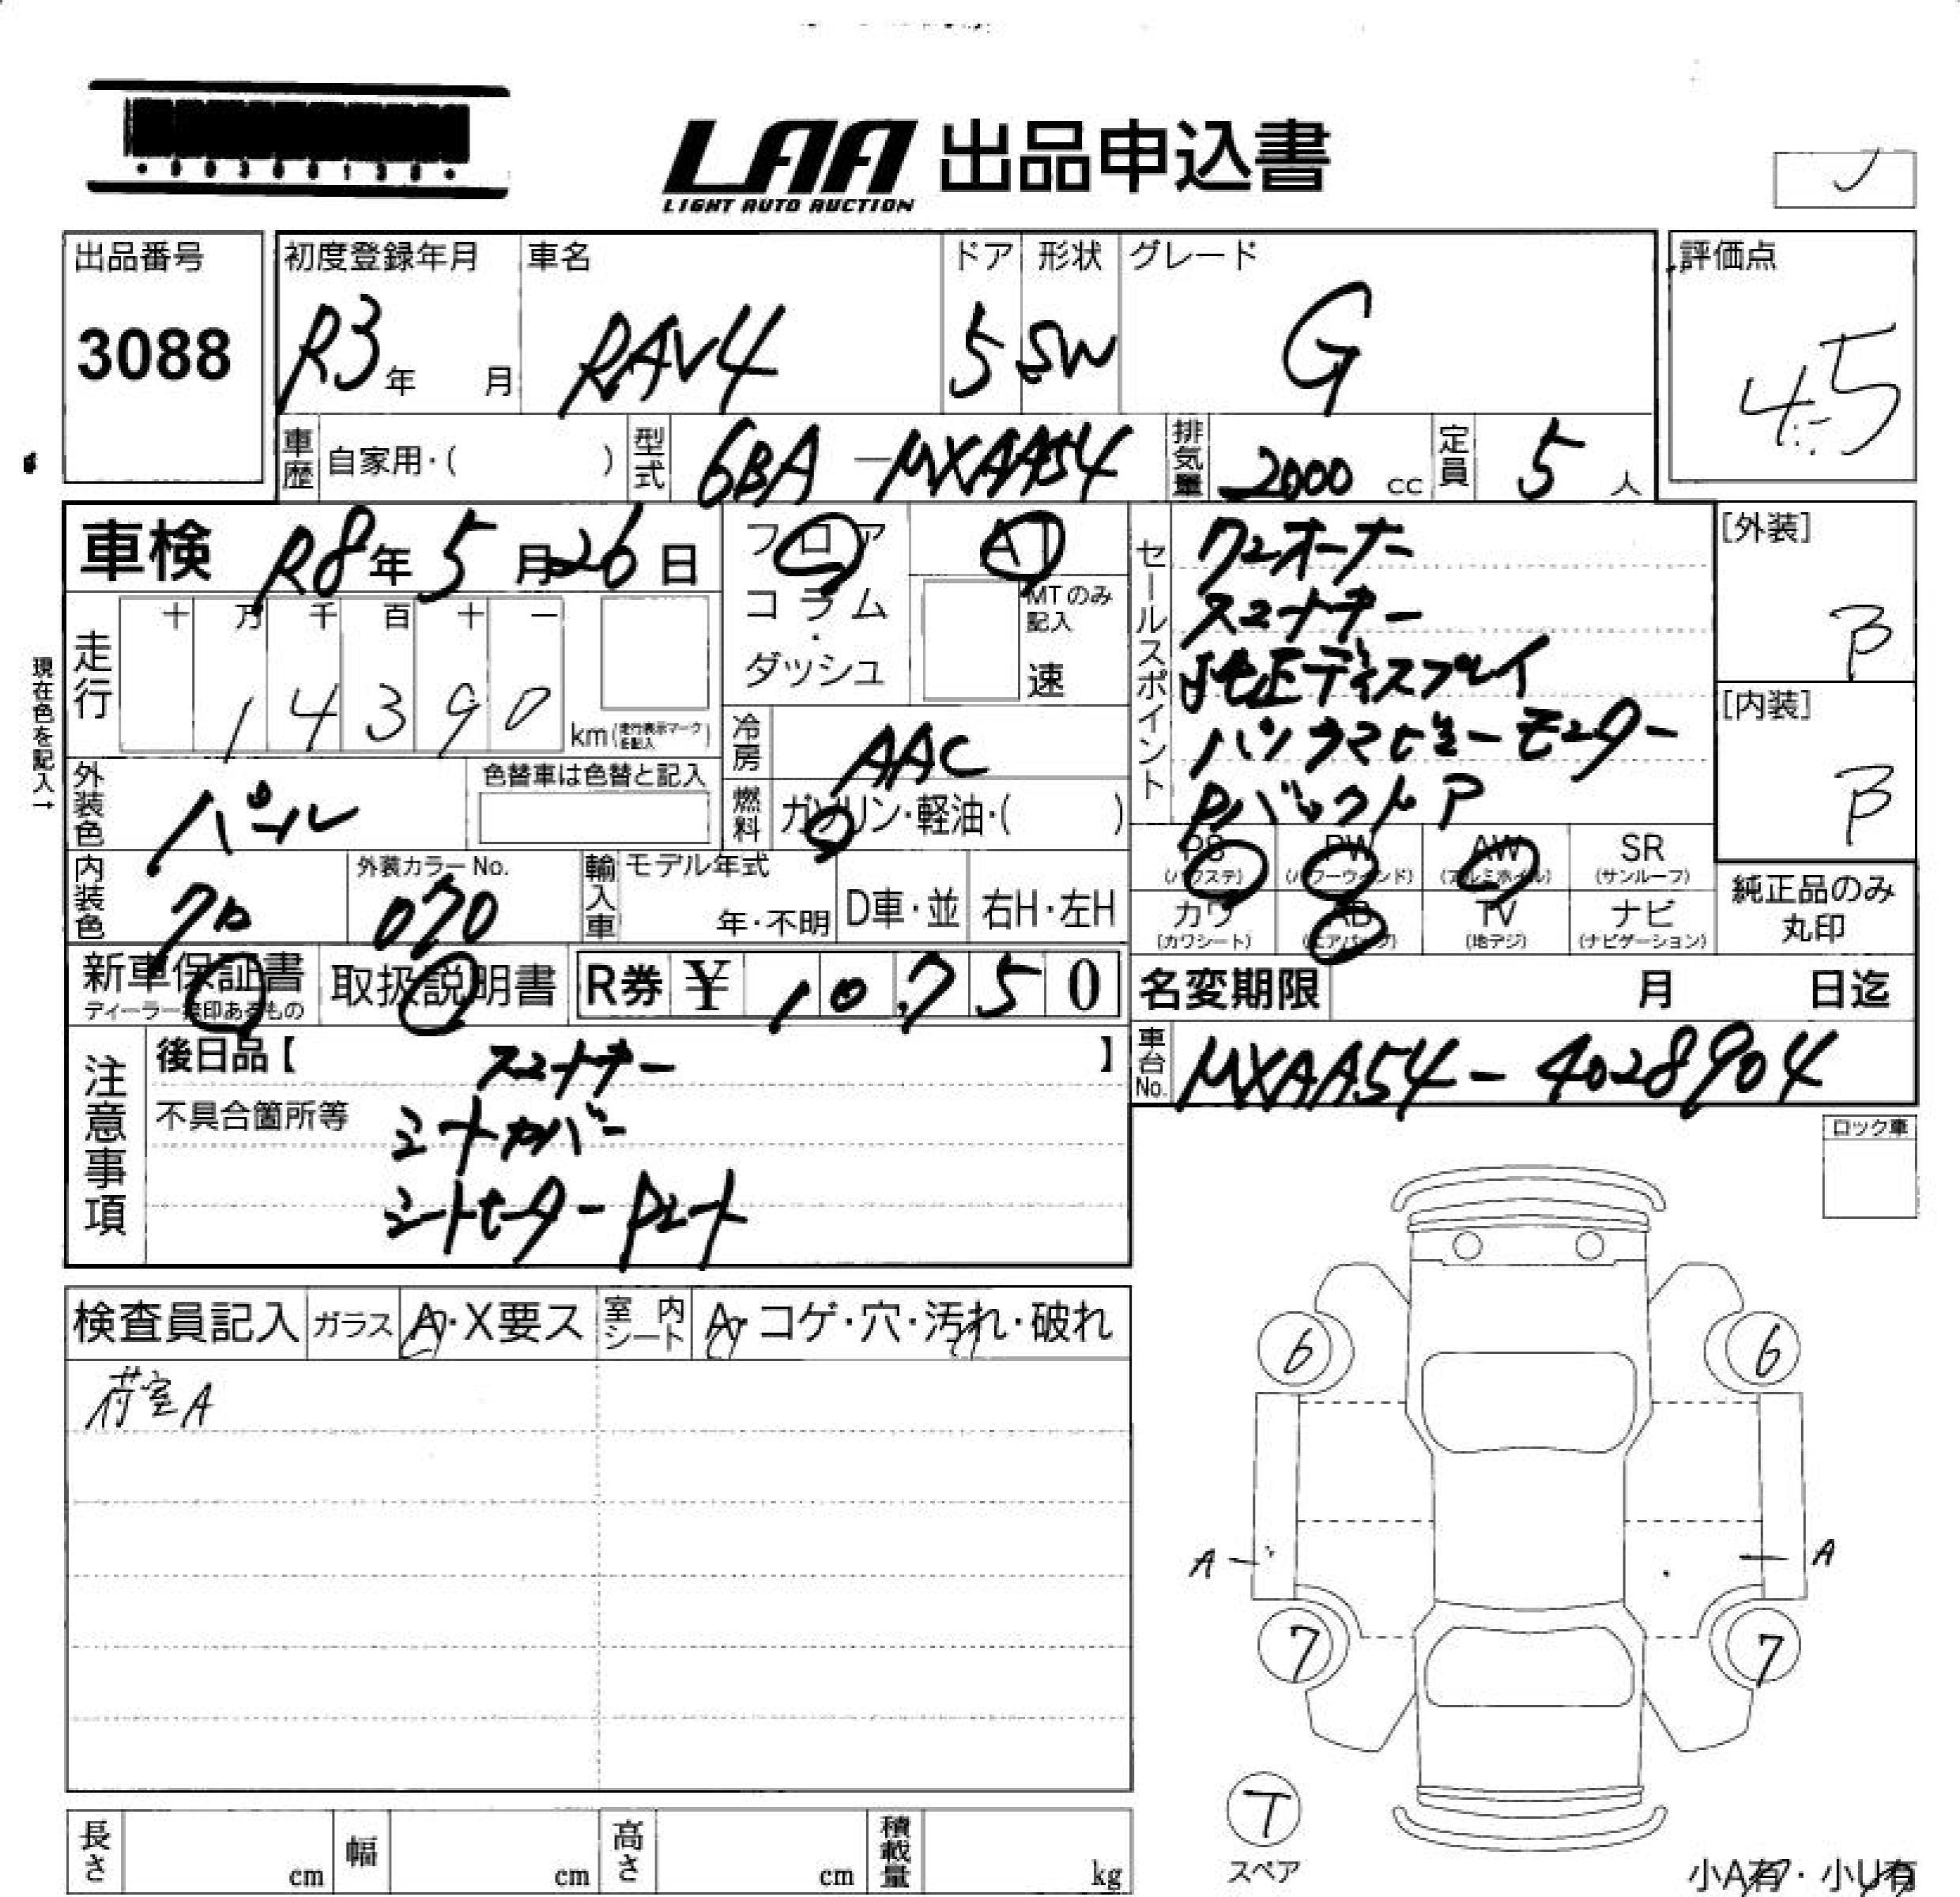 LAA 出品申込書
LIGHT AUTO AUCTION
出品番号
3088
初度登録年月
R3年 月
車名
RAV4
ドア
5
形状
SW
グレード
G
評価点
4.5
車歴 自家用・( )
型式 6BA-MXAA54
排気量 2000 cc
定員 5 人
車検 R8年5月26日
フロア
コラム
・
ダッシュ
AT
MTのみ記入
速
現在色を記入→
走行
十 万 千 百 十 一
1 4 3 9 0
km (走行表示マークを記入)
冷房 AAC
外装色 パール
色替車は色替と記入
燃料 ガソリン・軽油・( )
内装色 クロ
外装カラーNo.
070
輸入車 モデル年式
年・不明
D車・並
右H・左H
セールスポイント
ワンオーナー
スマートキー
純正ディスプレイ
パノラマビューモニター
Pバックドア
PS (パワステ)
PW (パワーウィンド)
AW (アルミホイル)
SR (サンルーフ)
カワ (カワシート)
AB (エアバッグ)
TV (地デジ)
ナビ (ナビゲーション)
[外装]
B
[内装]
B
純正品のみ丸印
新車保証書
取扱説明書
R券 ¥ 10,750
名変期限 月 日迄
車台No. MXAA54-4028904
注意事項
後日品【 】
不具合箇所等
シートカバー
シートヒーター
ロック車
検査員記入 ガラス A・X要ス 室内シート A・コゲ・穴・汚れ・破れ
荷室A
6 6
A A
7 7
T
スペア
長さ cm 幅 cm 高さ cm 積載量 kg
小A有・小U有